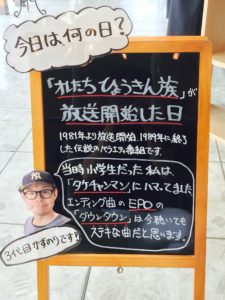 今日は何の日？
「オレたちひょうきん族」が
放送開始した日
1981年より放送開始、1989年に終了
した伝説のバラエティ番組です。
当時小学生だった私は、
「タケチャンマン」にハマってました
エンディング曲のEPOの
「ダウンタウン」は今聴いても
ステキな曲だと思います。
3代目かずのりです!